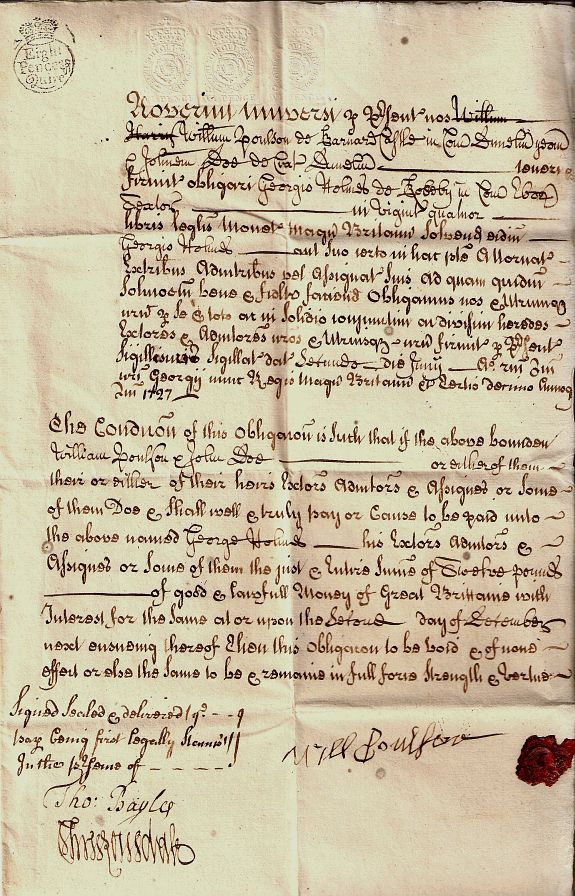 Eight
Pence p
Quire
Noverint Universi p Psent nos William
Haris William Poulson de Barnard Castle in Com Dunelm yeom
& Johnem Doe de Cat Dunelm teneri &
firmit obligari Georgio Holmes de in Com Ebor
in Vigint quatuor
libris leglis Monet Magn Britann Solvend eidm
Georgio Holmes aut suo certo in hac pte Attornat
Extribus Admtribus vel Assignat Suis Ad quam quidm
Soluconem bene & fidlr faciend Obligamus nos & Utrumq
nrm p se & toto et in Solido conjunctim ac divisim heredes
Extores & Admtores nros & Utriusq nrm firmit p Psent
Sigill Sigillat dat Secundo die Juny Ao rni Dni
nri Georgij nunc Regis Magn Britann &c Tertio decimo Annoq
Dni 1727
The Condicon of this Obligacon is Such that if the above bounden
William Poulson & John Doe or either of them
their or either of their heirs Extors Admtors & Assignes or Some
of them Doe & Shall well & truly pay or Cause to be paid unto
the above named George Holmes his Extors Admtors &
Assignes or Some of them the just & Entire Summe of Twelve pounds
of good & lawfull Money of Great Brittaine with
Interest for the Same at or upon the Second day of December
next ensueing thereof Then this Obligacon to be void & of none
effect or else the Same to be & remaine in full force Strength & Vertue
Signed Sealed & delivered
pap being first legally Stampt
In the Psence of
Will Poulson
Tho: Bayles